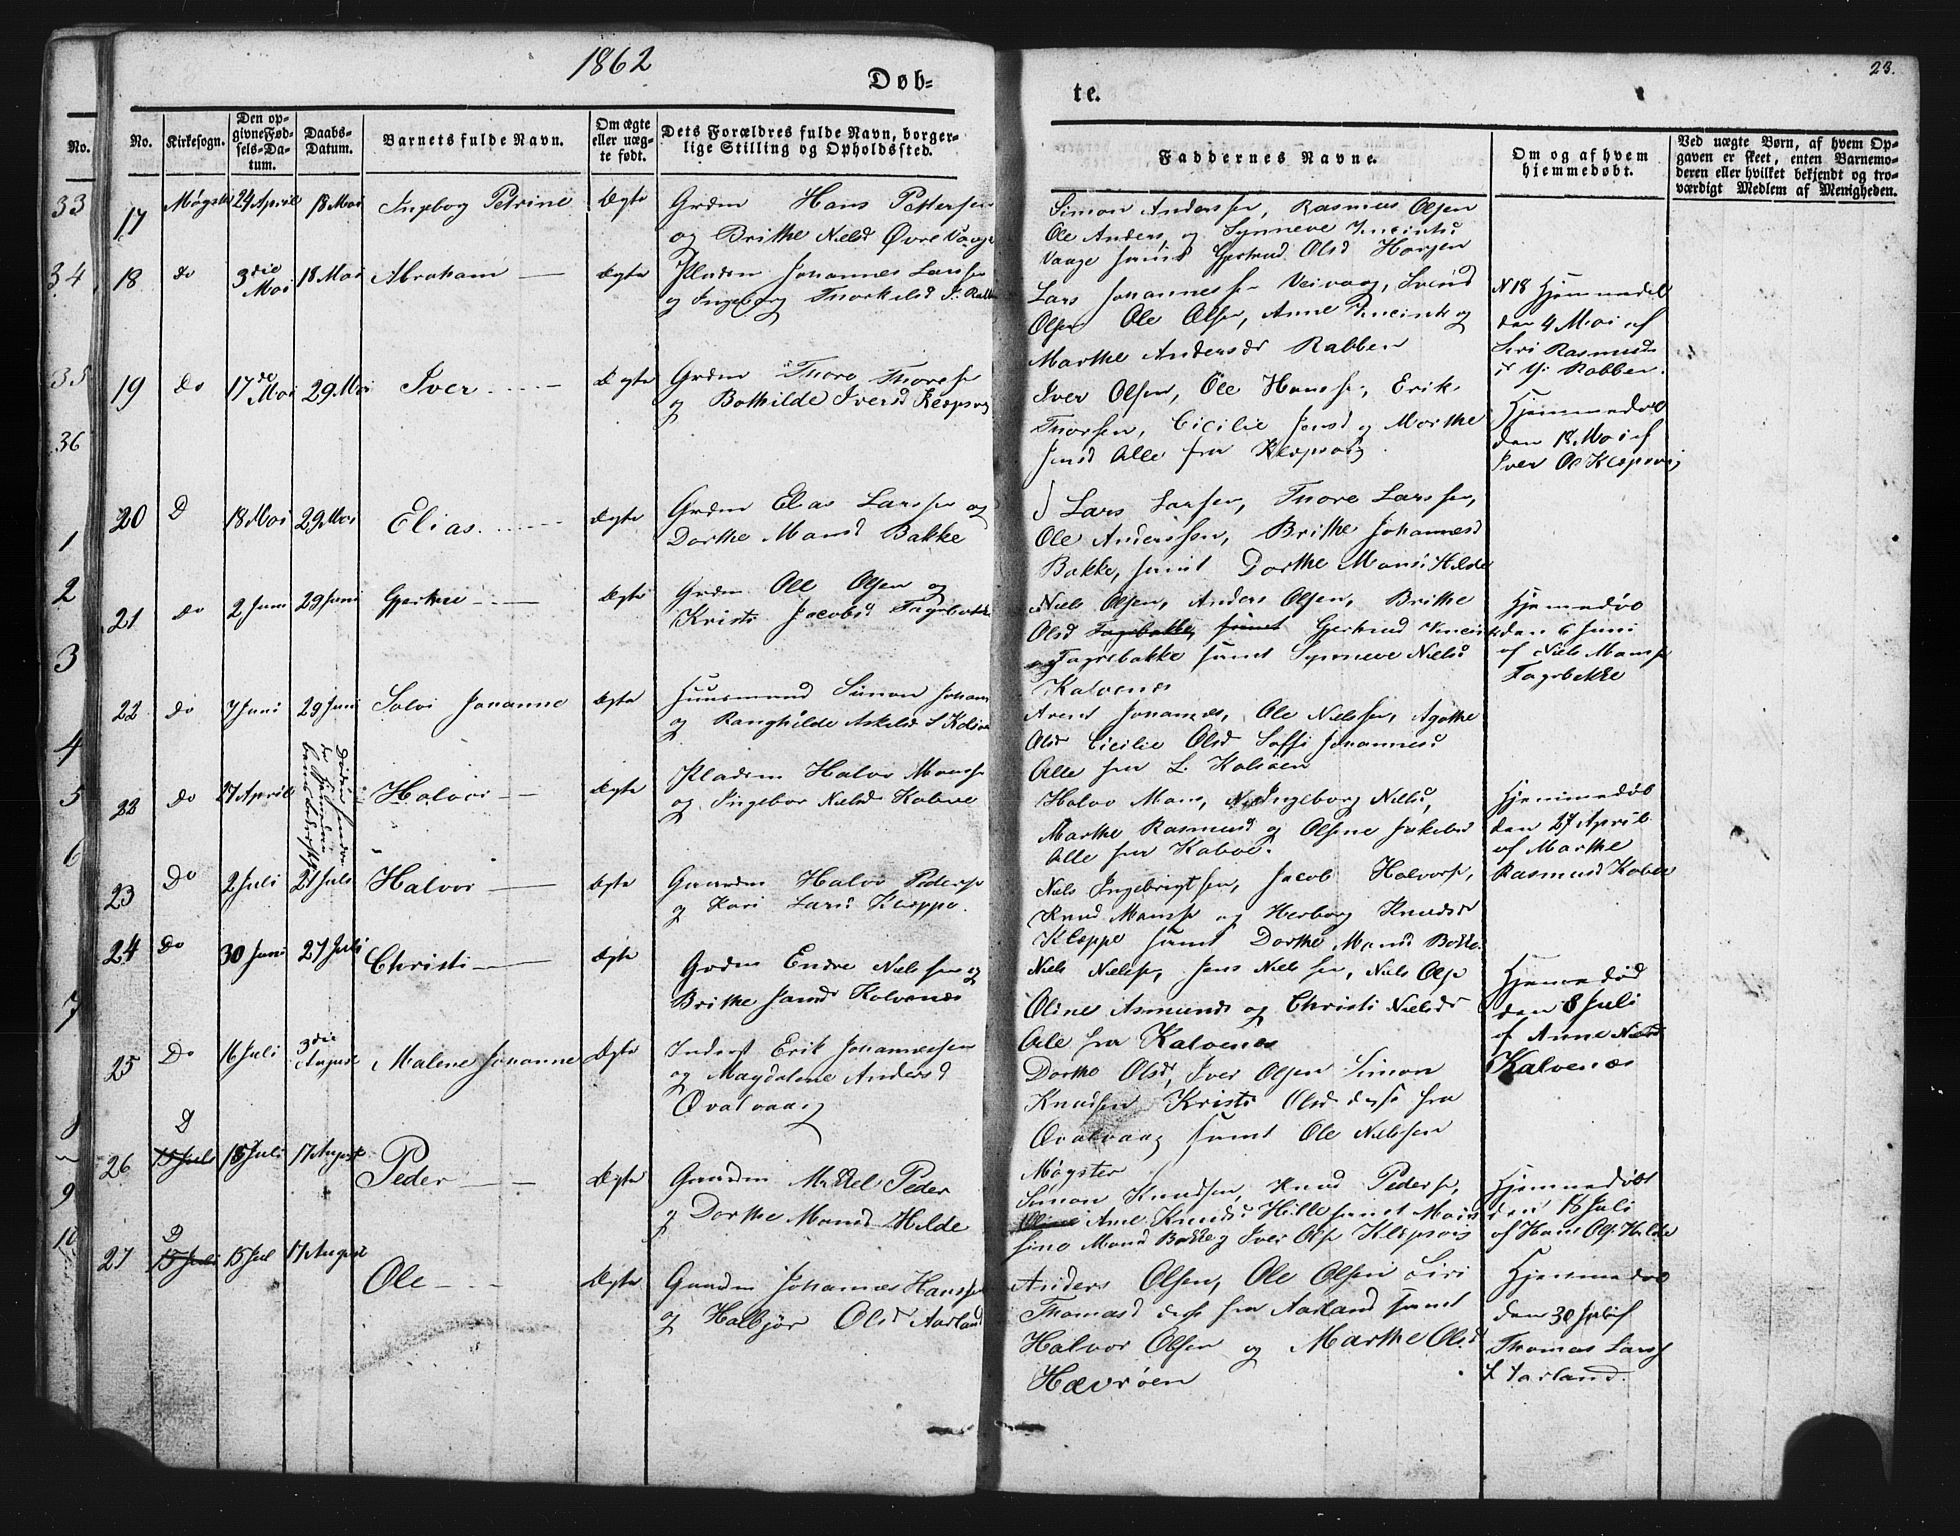 1862
Døb=
te.
23.
No.
No.
Kirkesogn.
Den op-
givne Fød-
sels-Da-
tum.
Daabs-
Datum.
Barnets fulde Navn.
Om ægte
eller uæg-
te født.
Dets Forældres fulde Navn, borger-
lige Stilling og Opholdssted.
Faddernes Navne.
Om og af hvem
hjemmedøbt.
Ved uægte Børn, af hvem Op-
gaven er skeet, enten Barnemo-
deren eller hvilket bekjendt og tro-
værdigt Medlem af Menigheden.
33
34
35
36
1
2
3
4
5
6
7
8
9
10
17 Møgster 24 April 18 Mai Ingebog Petrine Ægte Grdm Hans Pettersen
og Brithe Nielsd Øvre Vaage
Simon Anderssen, Rasmus Olsen
Ole Anders og Synneve
Vaage samt Gjertrud Olsd
18 do 3die Mai 18 Mai Abraham Ægte Pladsm Johannes Larssen
og Ingeborg Thorkilsd
Lars Johannesse
Olsen Ole Olsen, Anne
Marthe Andersdr Rabben
N 18 Hjemmedøb
den 4 Mai af
Siri Rasmusd
Rabben.
19 do 17de Mai 29 Mai Iver Ægte Grdm Thore Thorese
og Bothilde Iversd Kleppsvig
Iver Olsen, Ole Hansse, Erik
Thorsen, Cicilie Jensd og Marthe
Jensd Alle fra Kleppsvig
Hjemmedøb
den 18 Mai af
Iver Ol Kleppsvig
20 D 18 Mai 29 Mai Elias Ægte Grdm Elias Larssen og
Dorthe Monsd Bakke
Lars Larsen, Thore Larssen,
Ole Anderssen, Brithe Johannesd
Bakke, samt Dorthe Monsd Hilde
21 do 2 Juni 29 Juni Ægte Grdm Ole Olsen og
Kristi Jacobsd Fagerbakke
Niels Olsen, Anders Olsen, Brithe
Olsd Fagerbakke samt Gjertrud
Fagerbakke samt Synneve Nielsd
Kalvenæs
Hjemmedøb
den 6 Juni
af Niels Monsse
Fagerbakke
22 do 7 Juni 29 Juni Salvi Johanne Ægte Huusmand Simon
og Ranghilde Askelsd
Arent Johannes, Ole Nielssen, Agathe
Olsd Cicilie Olsd Johannesd
Alle fra L. Kalsøen
22 do 27 April
Halvor Ægte Pladsm Halvo Monse
og Ingebor Nielsd
Halvo Mons, Ingeborg Nielsd,
Marthe Rasmusd og Olsine
Alle fra
Hjemmedøb
den 27 April
af Marthe
Rasmusd
23 Do 2 Juli 27 Juli Halvor Ægte Gaardm Halvo Pederse
og Kari Larsd Kleppe.
Niels Ingebrigtsen, Jacob Halvorse,
Knud Monsse og Herborg Knudsdr
Kleppe samt Dorthe Monsd Bakke
24 Do 30 Juni 27 Juli Christi Ægte Grdm Endre Nielssen og
Brithe Jansdr Kalvenæs
Niels Nielse, Jens Nielssen, Niels Olse
Oline Asmunds og Christi Nielsdr
Alle fra Kalvenæs
Hjemmedød
den 8 Juli
af Anne Nielsd
Kalvenæs
25 Do 16 Juli 3die August Malene Johanne Ægte Inderst Erik Johannessen
og Magdalene Andersd
Qvalvaag
Dorthe Olsd, Iver Olsen Simon
Knudsen Kristi Olsd disse fra
Qvalvaag samt Ole Nielssen
Møgster
26 D 15 Juli 18 Juli 17 August Peder Ægte Gaardm Mikkel Peder
og Dorthe Monsd Hilde
Simon Knudsen, Knud Pederse,
Oline Ane Knudsd Hille samt
sine Monsd Bakke og Iver Olse Kleppsvig
Hjemmedøbt
den 18 Juli
af Hans Ols Hilde
27 D 15 Juli 15 Jul 17 August Ole Ægte Gaardm Johannes Hansse
og Halbjør Olsd Aarland
Anders Olsen, Ole Olsen Siri
Thomasd disse fra Aarland samt
Halvor Olsen og Marthe Olsd
Hævrøen
Hjemmedøb
den 30 Juli af
Thomas Larss
Aarland.